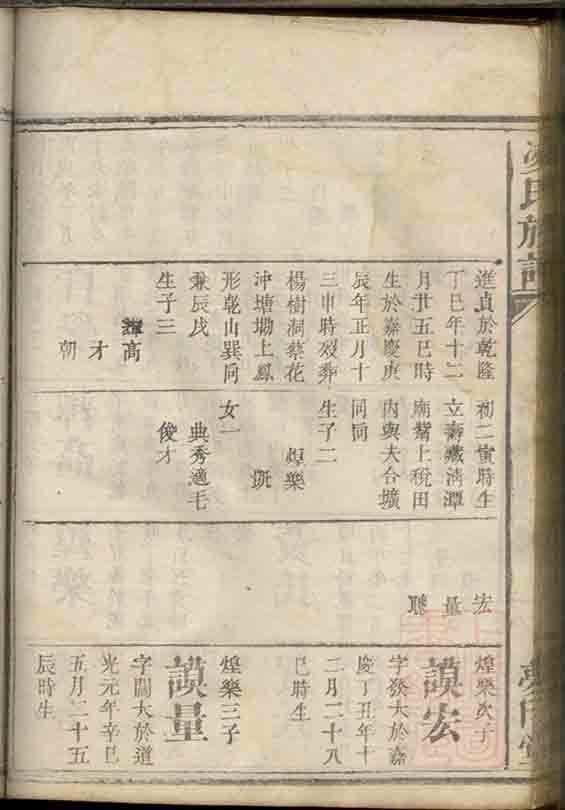 氏族
進貞於乾隆
丁巳年十二
月廿五巳時
生於嘉慶庚
辰年正月十
三申時歿葬
楊樹洞蔡花
沖塘坳上鳳
形乾山巽向
兼辰戌
生子三
高
才
朝
初二寅時生
立壽藏淸潭
廟觜上稅田
內與大合壙
同向
生子二
煌樂
斑
女一
典秀適毛
俊才
宏
量
聰
煌樂次子
謨宏
字發大於嘉
慶丁丑年十
二月二十八
巳時生
煌樂三子
謨量
字闊大於道
光元年辛巳
五月二十五
辰時生